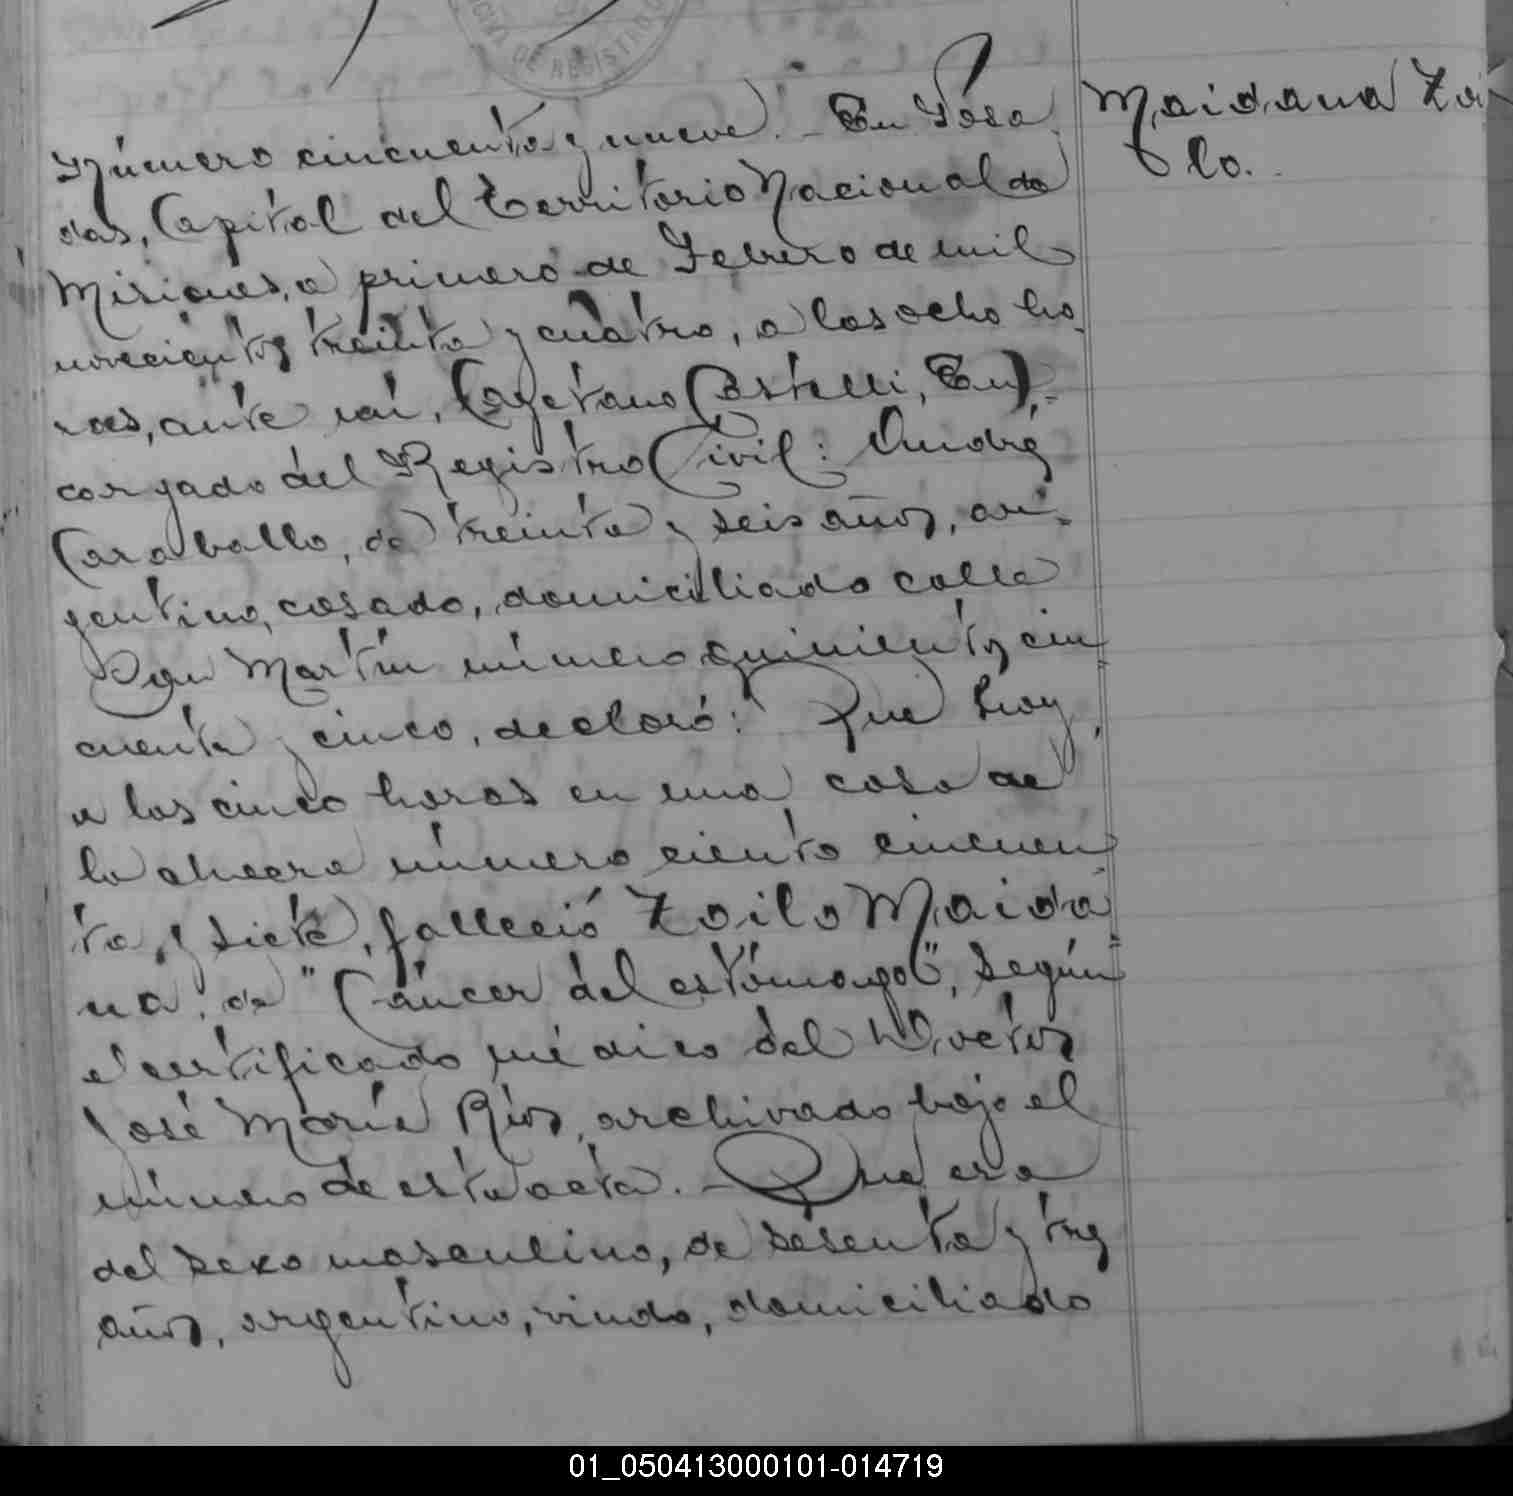 DE REGISTRO
Maidana Zoi
lo.
Número cincuenta y nueve. En Posa
das, Capital del Territorio Nacional de
Misiones, a primero de Febrero de mil
novecientos treinta y cuatro, a las ocho ho
ras, ante mí, Cayetano Castelli, En
cargado del Registro Civil: André
Caraballo, de treinta y seis años, ar
gentino, casado, domiciliado calle
San Martín número quinientos cin
cuenta y cinco, declaró: Que hoy
a las cinco horas en una casa de
la chacra número ciento cincuen
ta y siete, falleció Zoilo Maida
na, de "Cáncer del estómago", según
el certificado médico del Doctor
José María Ríos, archivado bajo el
número de esta acta. - Que era
del sexo masculino, de sesenta y tres
años, argentino, viudo, domiciliado
01_050413000101-014719